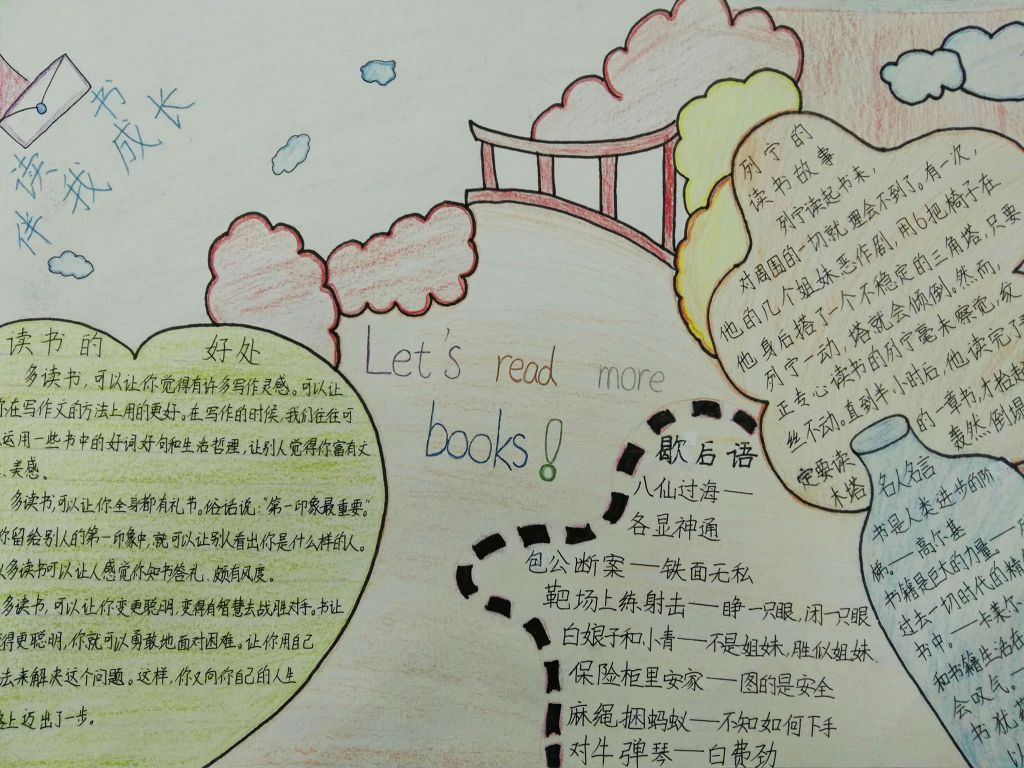 读书
伴我成长
读书的 好处
多读书,可以让你觉得有许多写作灵感。可以让
你在写作文的方法上用的更好。在写作的时候,我们往往可
运用一些书中的好词好句和生活哲理,让别人觉得你富有文
、美感。
多读书,可以让你全身都有礼节。俗话说:“第一印象最重要。”
你留给别人的第一印象中,就可以让别人看出你是什么样的人。
多读书可以让人感觉你知书答礼、颇有风度。
多读书,可以让你变更聪明,变得有智慧去战胜对手。书让
得更聪明,你就可以勇敢地面对困难。让你用自己
去来解决这个问题。这样,你又向你自己的人生
路上迈出了一步。
Let's read more
books!
歇后语
八仙过海——
各显神通
包公断案——铁面无私
靶场上练射击——睁一只眼,闭一只眼
白娘子和小青——不是姐妹,胜似姐妹
保险柜里安家——图的是安全
麻绳捆蚂蚁——不知如何下手
对牛弹琴——白费劲
列宁的
读书故事
列宁读起书来,
对周围的一切就理会不到了。有一次,
他的几个姐妹恶作剧,用6把椅子在
他身后搭了一个不稳定的三角塔,只要
列宁一动,塔就会倾倒。然而,
正专心读书的列宁毫未察觉,纹
丝不动。直到半小时后,他读完了
定要读的一章书,才抬起
木塔轰然倒塌
名人名言
书是人类进步的阶
梯。——高尔基
书籍是巨大的力量。——
过去一切时代的精
书中。——卡莱尔
和书籍生活在
会叹气。——
书犹药
以